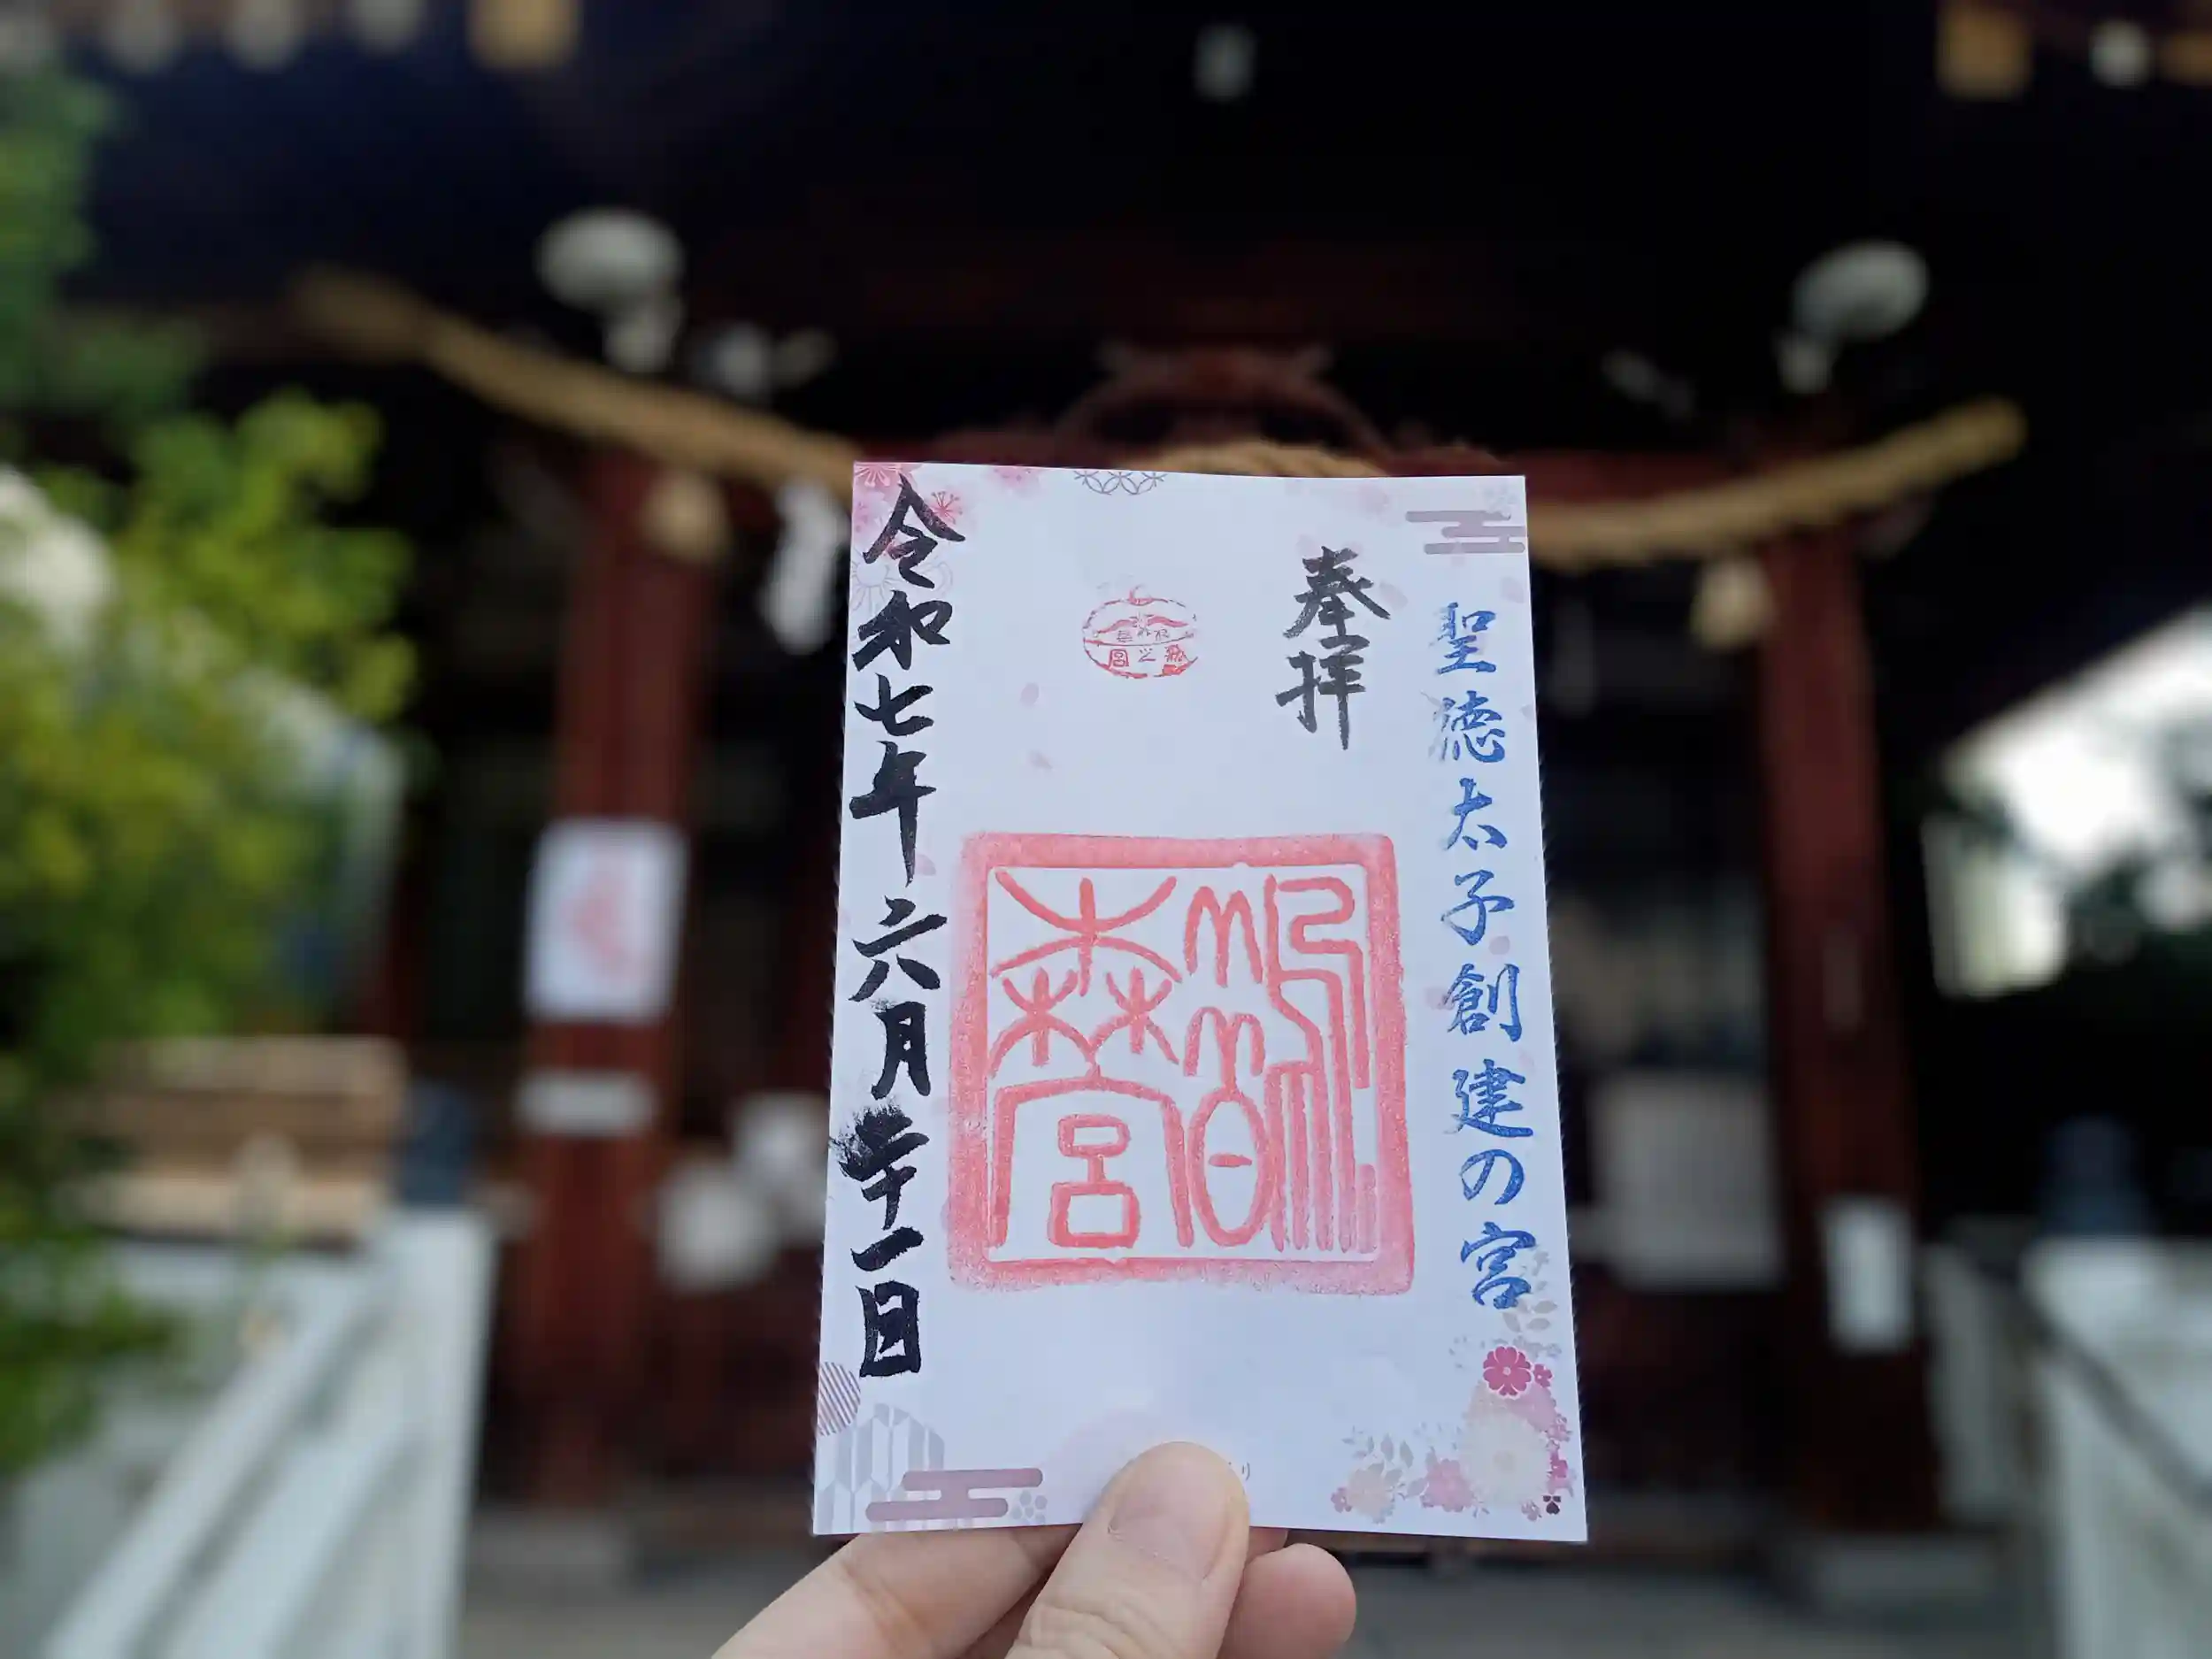 聖徳太子創建の宮
奉拝
鵲森宮
令和七年六月二十一日